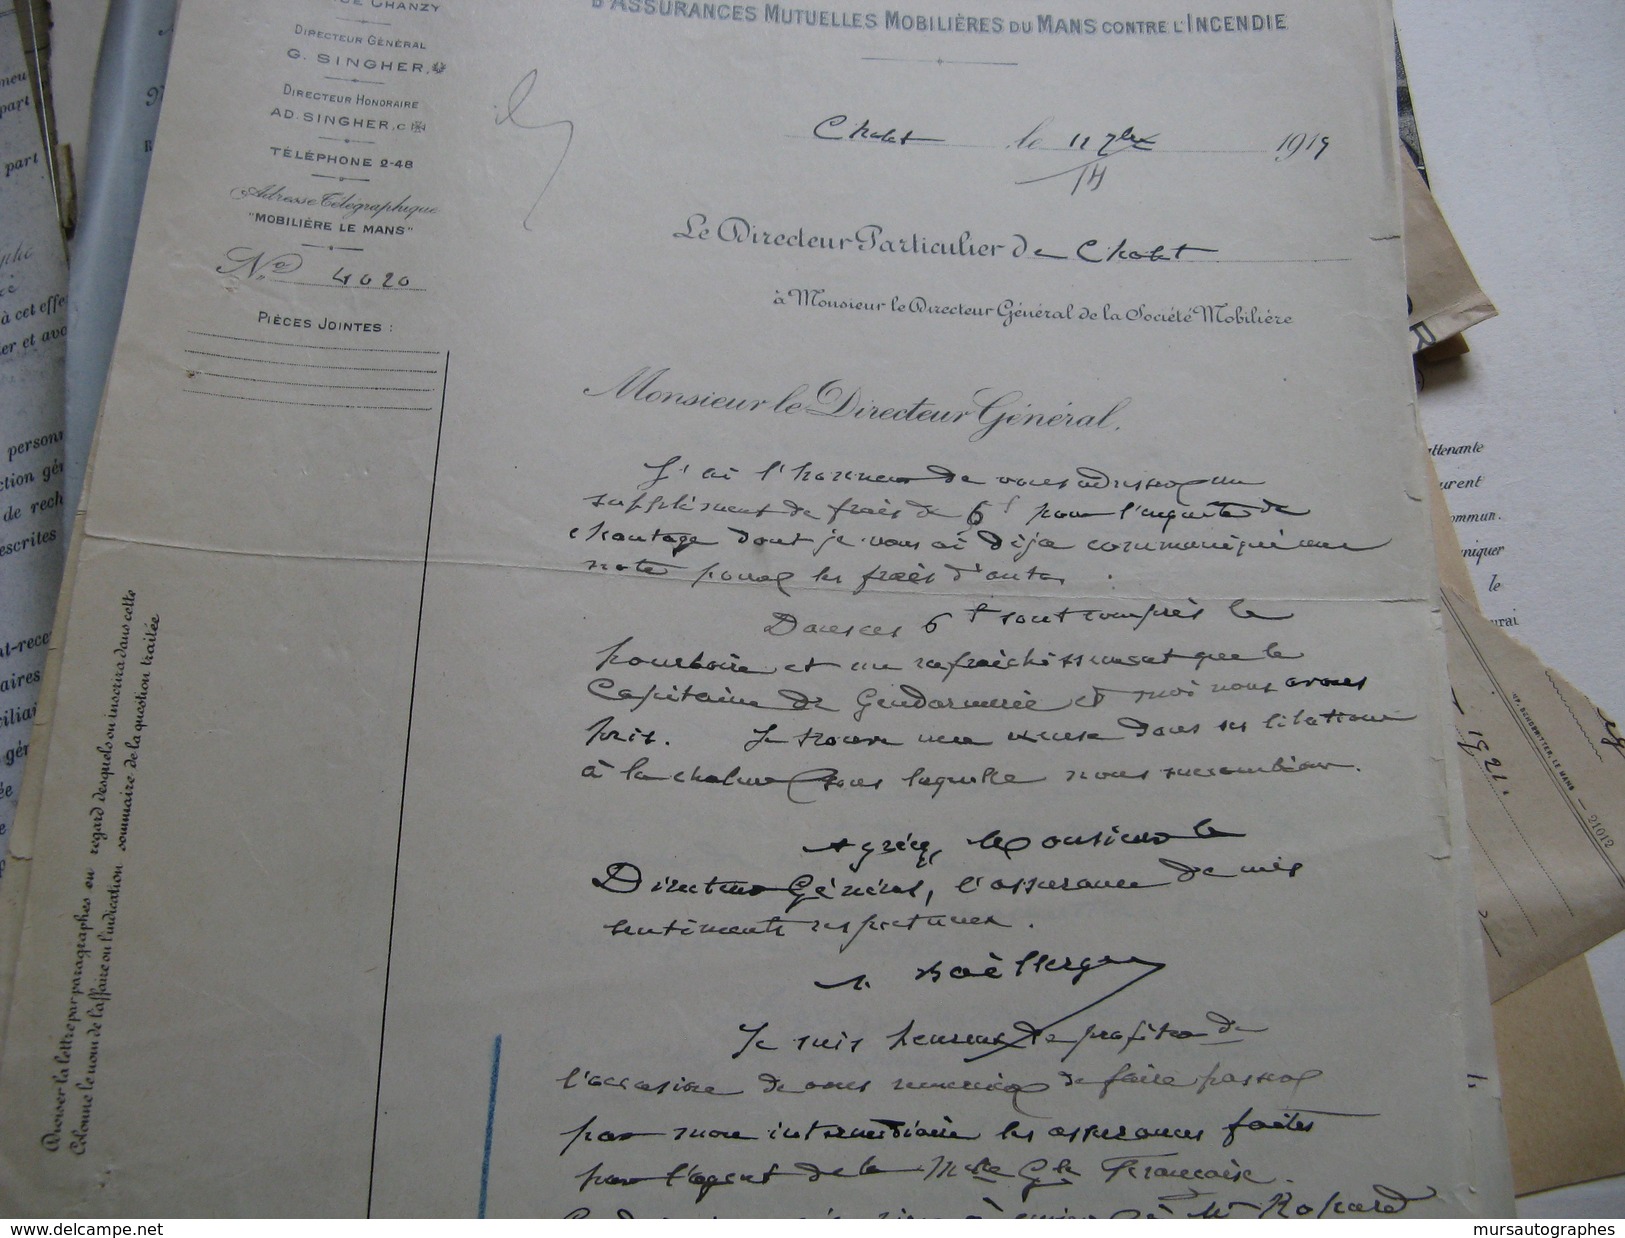 CHANZY
DIRECTEUR GÉNÉRAL
G. SINGHER
DIRECTEUR HONORAIRE
AD. SINGHER, C
TÉLÉPHONE 2-48
Adresse Télégraphique
"MOBILIÈRE LE MANS"
No 4020
PIÈCES JOINTES :
D'ASSURANCES MUTUELLES MOBILIÈRES DU MANS CONTRE L'INCENDIE
Cholet le 11 7bre 1919
Le Directeur Particulier de Cholet
à Monsieur le Directeur Général de la Société Mobilière
Monsieur le Directeur Général,
J'ai l'honneur de vous adresser un
supplément de frais de 6f pour l'enquête de
chantage dont je vous ai déja communiqué une
note pour les frais d'auto.
Dans ces 6f sont compris le
pourboire et un rafraichissement que le
Capitaine de Gendarmerie et moi nous avons
pris. Je trouve une excuse dans ces libations
à la chaleur sous laquelle nous succombions.
Agréez, Monsieur le
Directeur Général, l'assurance de mes
sentiments respectueux.
Je suis heureux de profiter de
l'occasion de vous remercier de faire passer
par mon intermédiaire les assurances faites
par l'agent de la Mlle Gle Française.
à Mr
Diviser la lettre par paragraphes en regard desquels on inscrira dans cette
Colonne le nom de l'affaire ou l'indication sommaire de la question traitée
part
part
à cet effe
er et avo
person
ction gé
de rech
escrites
aires
gér
attenante
urent
ommun.
niquer
le
urai
1921.
LE MANS — 21012
delcampe.net
mursautographes